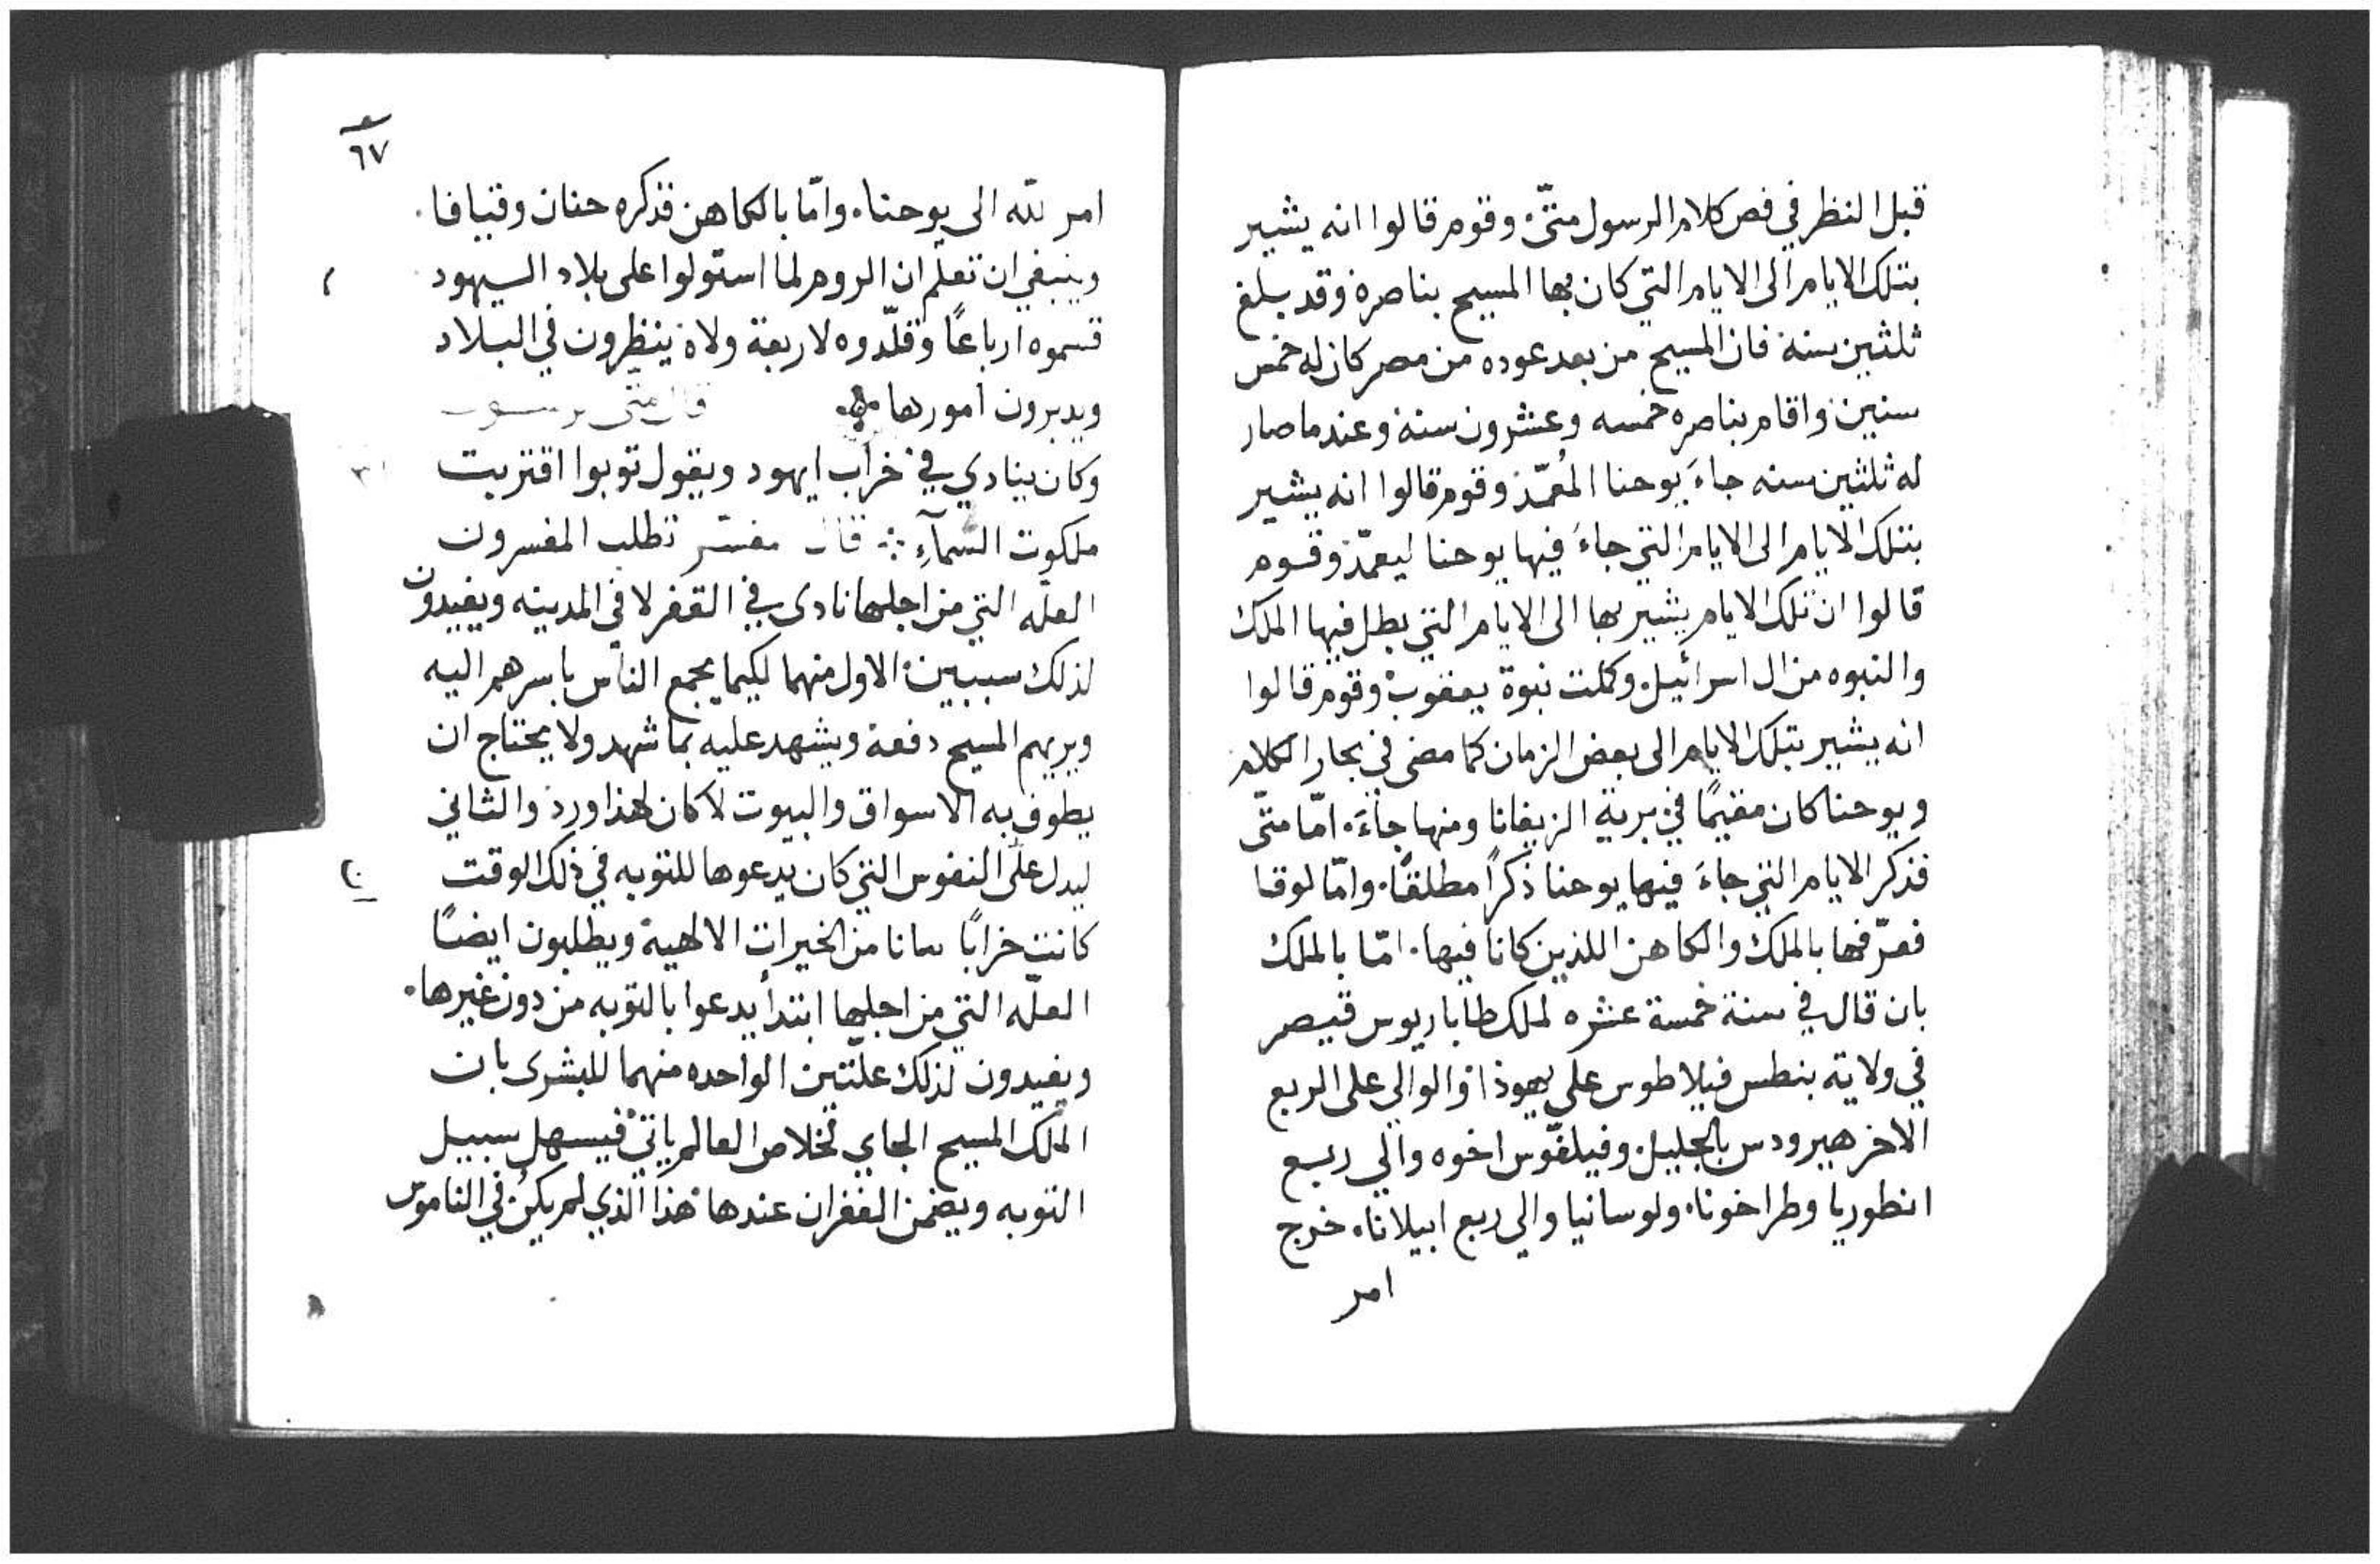 قبل النظر في فص كلام الرسول متّى. وقوم قالوا انه يشير
بتلك الايام الى الايام التي كان بها المسيح بناصرة وقد بلغ
ثلثين سنة فان المسيح من بعد عوده من مصر كان له خمس
سنين واقام بناصره خمسه وعشرون سنة وعندما صار
له ثلثين سنه جاءَ يوحنا المُعمّذ وقوم قالوا انه يشير
بتلك الايام الى الايام التي جاءَ فيها يوحنا ليعمّذ وقوم
قالوا ان تلك الايام يشير بها الى الايام التي بطل فيها الملك
والنبوه من ال اسرائيل وكملت نبوة يعقوب وقوم قالوا
انه يشير بتلك الايام الى بعض الزمان كما مضى في مجار الكلام
ويوحنا كان مقيمًا في برية الزيفانا ومنها جاءَ. امّا متّى
فذكر الايام التي جاءَ فيها يوحنا ذكرًا مطلقًا. وامّا لوقا
فعرّفها بالملك والكاهن اللذين كانا فيها. امّا بالملك
بان قال في سنة خمسة عشره لملك طاباريوس قيصر
في ولاية بنطس فيلاطوس على يهوذا والوالي على الربع
الاخر هيرودس بالجليل وفيلفّوس اخوه والي ربع
انطوريا وطراخونا. ولوسانيا والي ربع ابيلانا. خرج
امر
٦٧
امر لله الى يوحنا. وامّا بالكاهن فذكره حنان وقيافا.
وينبغي ان تعلم ان الروم لما استولوا على بلاد اليهود
قسموه ارباعًا وقلّدوه لاربعة ولاة ينظرون في البلاد
ويدبرون امورها قال متى
وكان ينادي في خراب ايهود ويقول توبوا اقتربت
ملكوت السمآءِ قال مفسّر تطلب المفسرون
العلّه التي من اجلها نادى في القفر لا في المدينه ويفيدون
لذلك سببين. الاول منهما لكيما يجمع الناس باسرهم اليه
ويريهم المسيح دفعة ويشهد عليه بما شهد ولا يحتاج ان
يطوف به الاسواق والبيوت لا كان لهذا ورد والثاني
ليدل على النفوس التي كان يدعوها للتوبه في ذلك الوقت
كانت خرابًا من الخيرات الالهية ويطلبون ايضًا
العلّه التي من اجلها ابتدأ يدعوا بالتوبه من دون غيرها.
ويفيدون لذلك علّتين الواحده منهما للبشرى بان
الملك المسيح الجاي لخلاص العالم ياتي فيسهل سبيل
التوبه ويضمن الغفران عندها هذا الذي لم يكن في الناموس